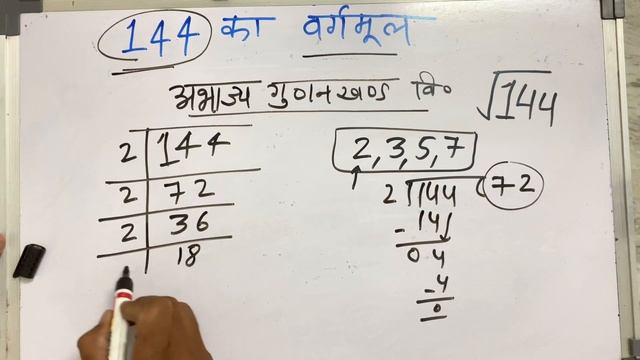 144 का वर्गमूल
अभाज्य गुणनखण्ड वि०
√144
2 | 144
2 | 72
2 | 36
18
2, 3, 5, 7
2 144 72
- 14
0 4
- 4
0